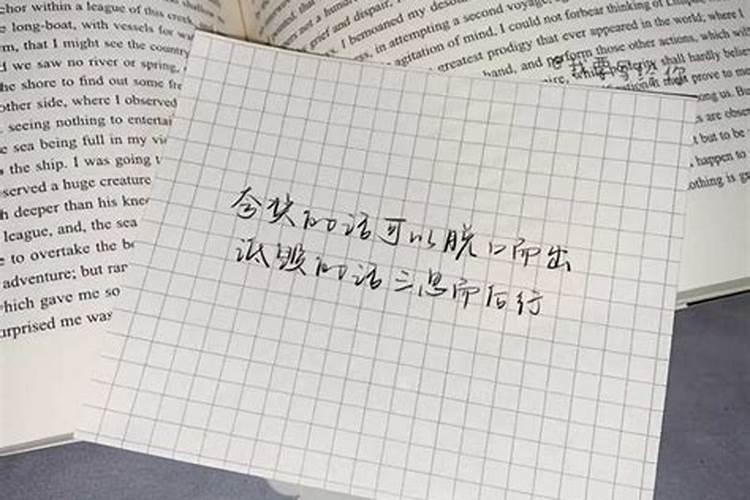 chor within a league of this creek
e long-boat, with vessels for wa
n, that I might see the country
d we saw no river or spring,
the shore to find out some fre
other side, where I observed
seeing nothing to entertai
e sea being full in my vie
the ship. I was going t
served a huge creature
h deeper than his knee
league, and, the sea
e to overtake the be
adventure; but ran
which gave me so
urprised me was
grief and despair,
I bemoaned my deso
in attempting a second voyage,
agitation of mind, I could not forbear thinking of
greatest prodigy that ever appeared in the world; where I
hand, and perform those other actions, which will
shall hardly believe
might prove to me
ong us. But
are obser
but to be
happen to
othing is g
我要写给你
夸奖的话可以脱口而出
诋毁的话三思而后行